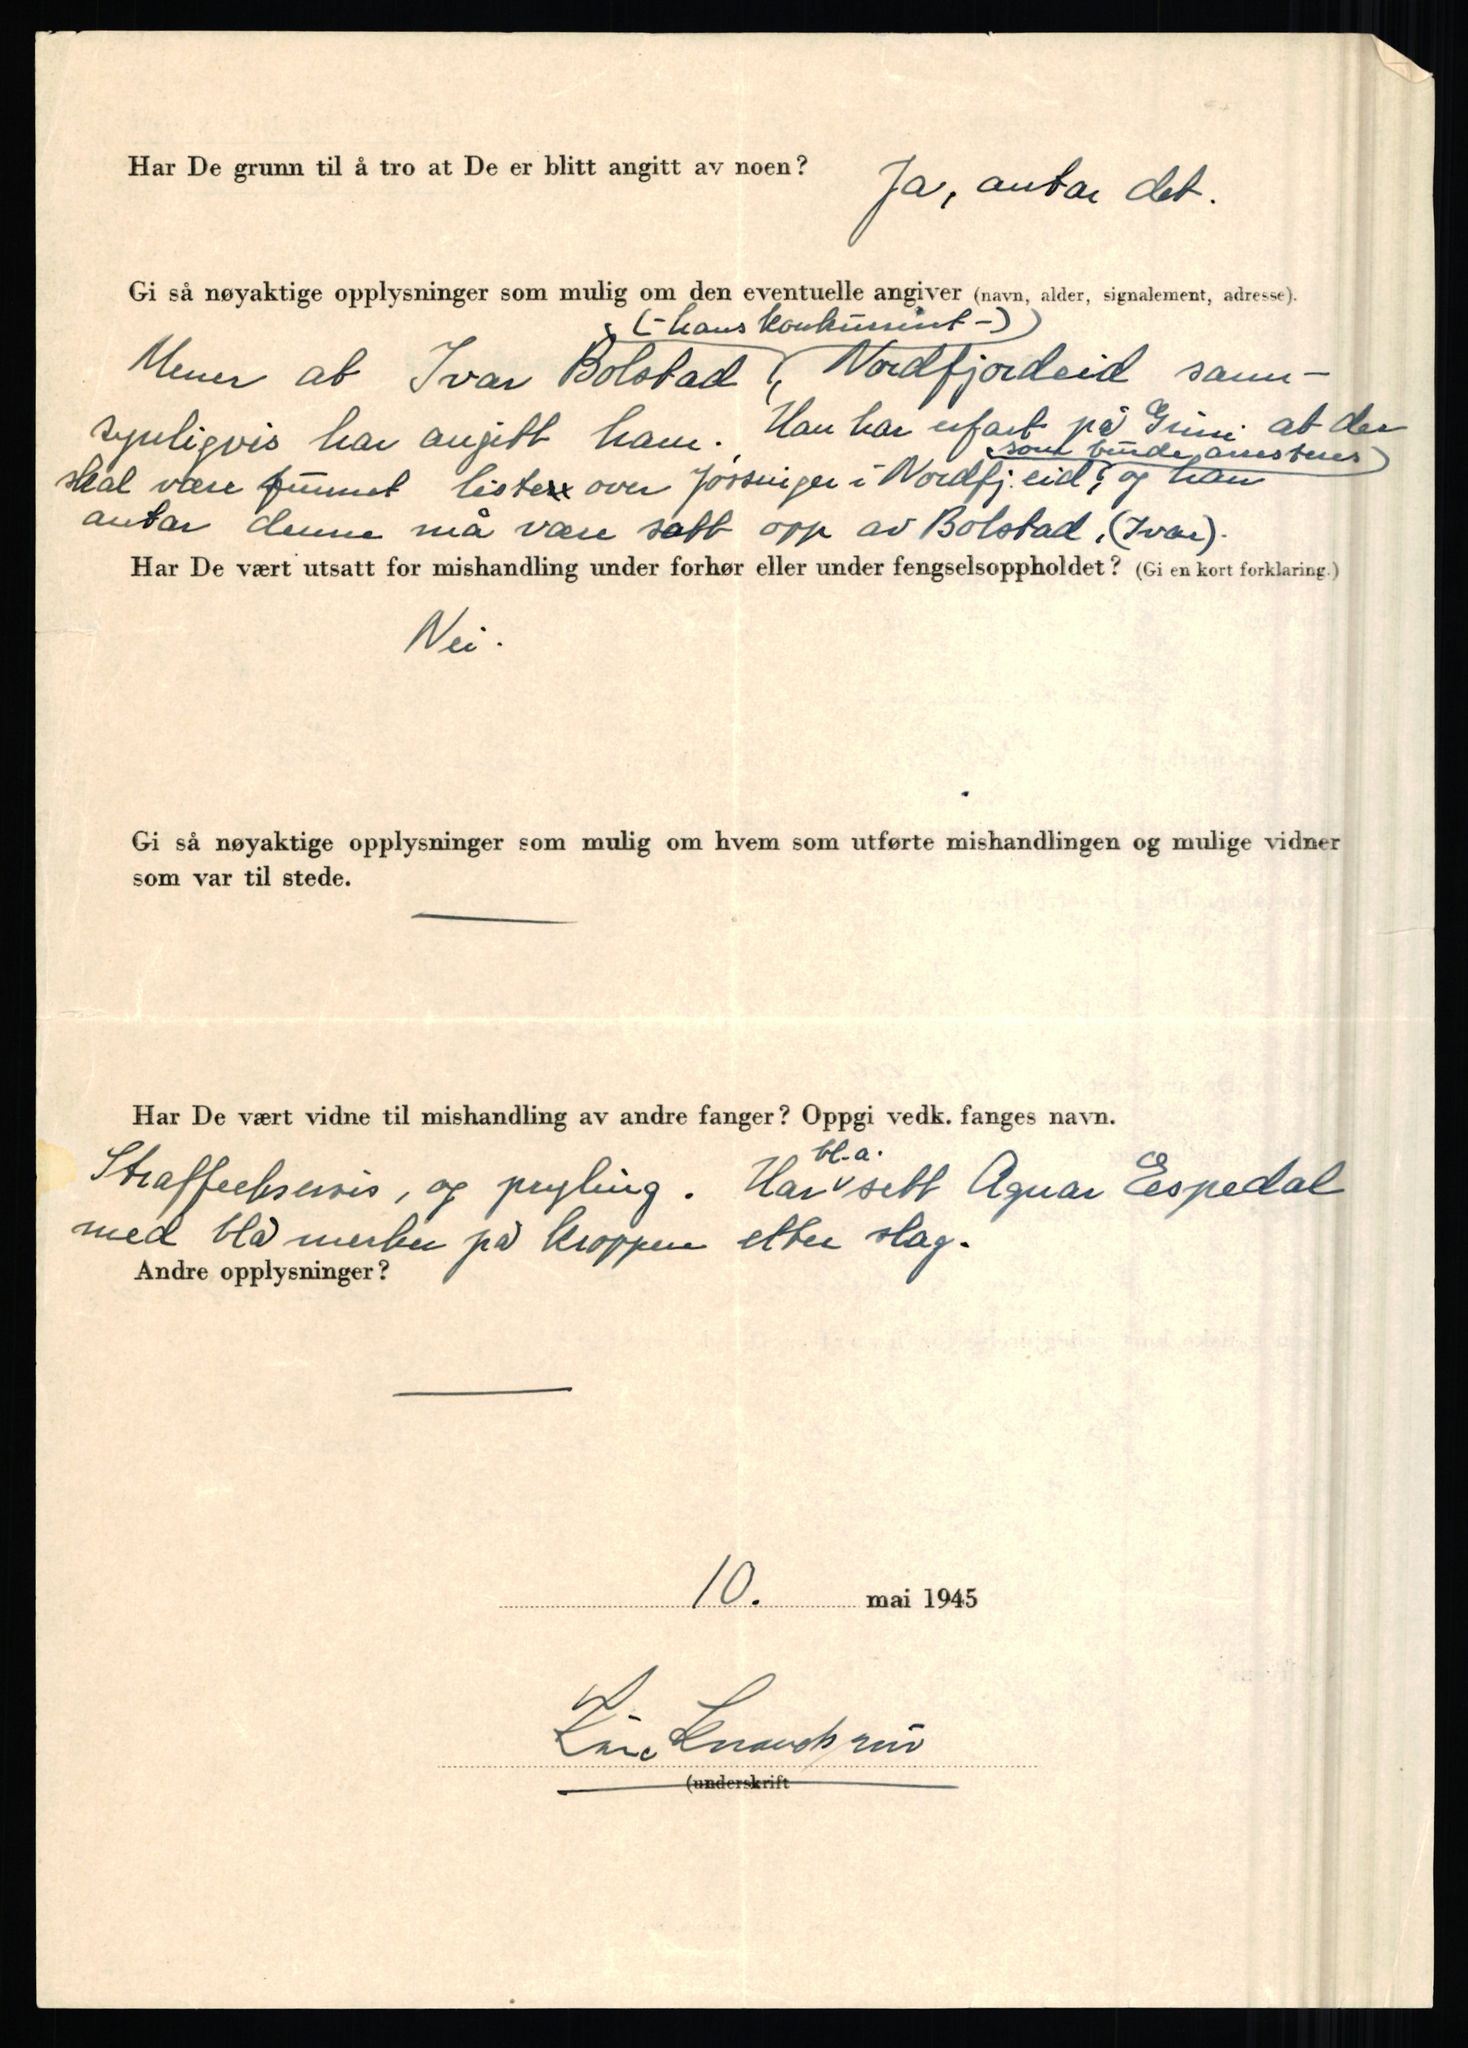 Har De grunn til å tro at De er blitt angitt av noen?
Ja, antar det.
Gi så nøyaktige opplysninger som mulig om den eventuelle angiver (navn, alder, signalement, adresse).
(- hans konkurrent -)
Mener at Ivar Bolstad, Nordfjordeid sann-
synligvis har angitt ham. Han har erfart på Grini at der
som burde arresteres
skal være funnet liste over jøssinger i Nordfj.eid, og han
antar denne må være satt opp av Bolstad, (Ivar).
Har De vært utsatt for mishandling under forhør eller under fengselsoppholdet? (Gi en kort forklaring.)
Nei.
Gi så nøyaktige opplysninger som mulig om hvem som utførte mishandlingen og mulige vidner
som var til stede.
Har De vært vidne til mishandling av andre fanger? Oppgi vedk. fanges navn.
bl.a.
Straffeeksersis, og pryling. Har sett Agnar Espedal
med blå merker på kroppen etter slag.
Andre opplysninger?
10. mai 1945
(underskrift